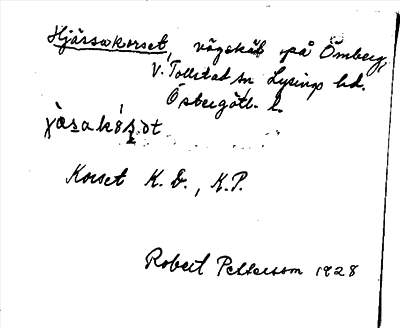 Hjässakorset, vägskäl på Omberg,
V. Tollstad sn Lysings hd.
Östergötl. l.
jàsakó̀rsət
Korset K. D., K.P.
Robert Pettersson 1928